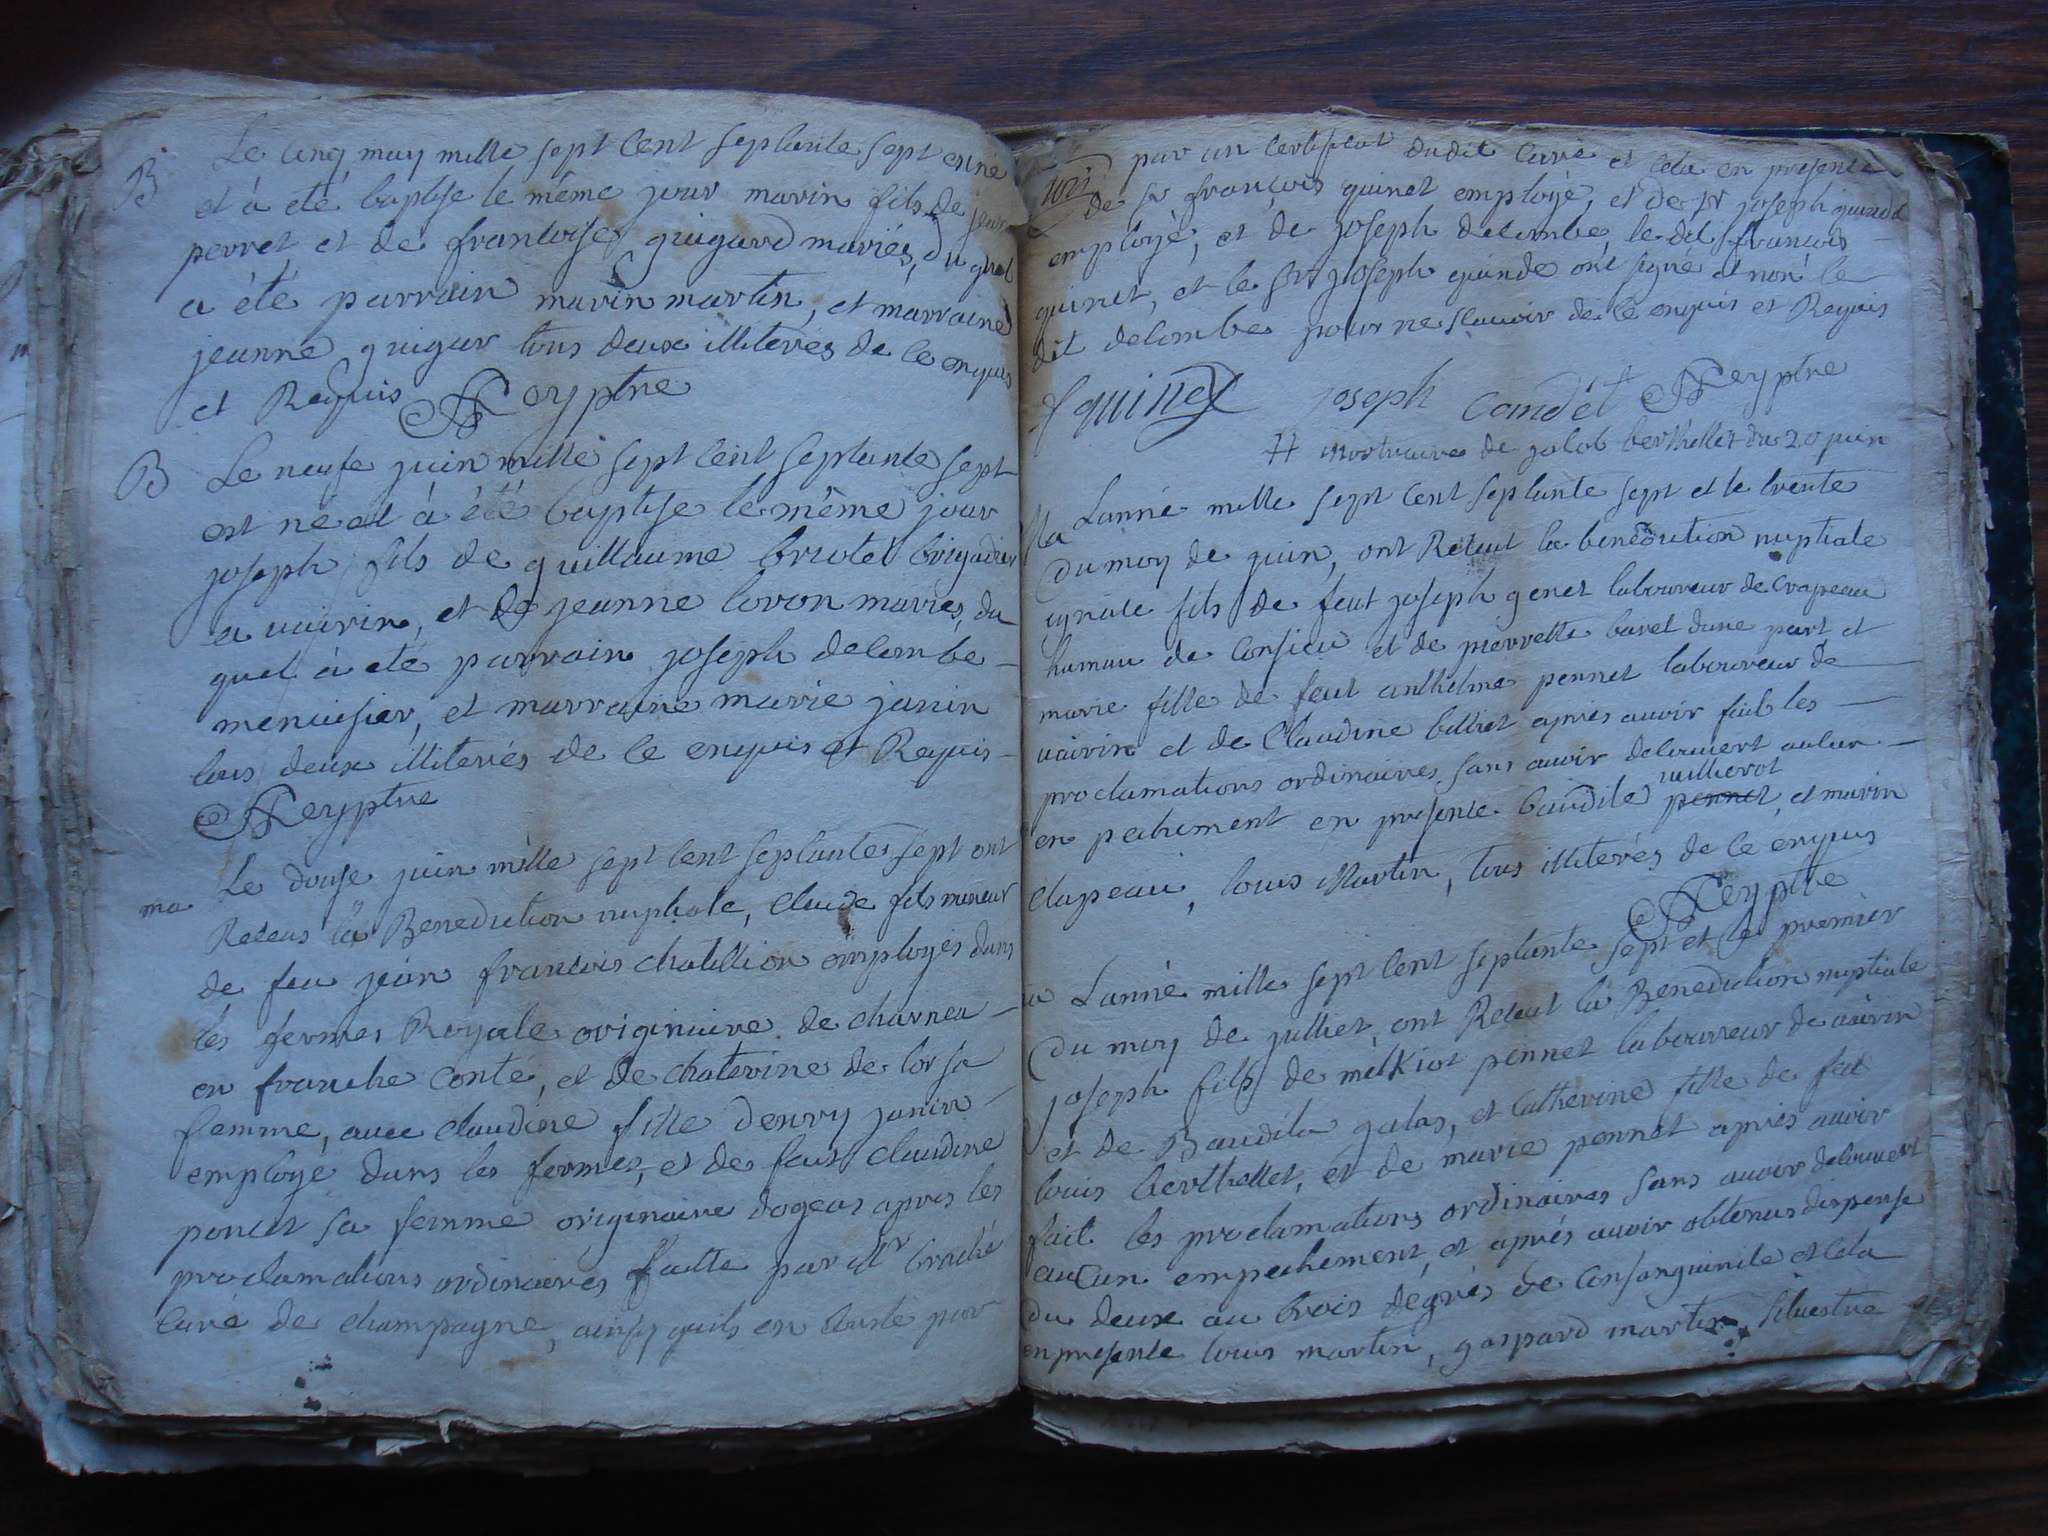 B Le cinq may mille sept cent septante sept est né
et à eté baptise le même jour marin fils de jean
perret, et de francoise guigard mariés, du quel
a été parrain marin martin, et marraine
jeanne guigar tous deux illiterés de ce enquis
et Requis Neyptre
B Le neufe juin mille sept cent septante sept
est né et à été baptise le même jour
joseph fils de guillaume briotet brigadier
a vairin, et de jeanne loron mariés, du
quel à eté parrain joseph delombe
menuisier, et marraine marie janin
tous deux illiterés de ce enquis et Requis
Neyptre
ma Le douse juin mille sept cent septante sept ont
Receus la Benediction nuptiale, claude fils mineur
de feu jean francois chatillion employés dans
les fermes Royale originaire de charnea
en franche conté, et de chaterine de lor sa
femme, avec claudine fille denry janin
employé dans les fermes, et de feut claudine
poncet sa femme originaire dogeas apres les
proclamations ordinaires faitte par Mr braché
curé de champagne, ainsy quils en conste par
par un certificat dudit curé et cela en presence
de sr françois quinet employé, et de sr joseph
employé, et de joseph delombe, le dit françois
quinet, et le sr joseph ont signé et non le
dit delombe pour ne scavoir de ce enquis et Requis
f quinet joseph Condet Neyptre
# mortuaire de jacob berthellet du 20 juin
Ma Lanné mille sept cent septante sept et le trente
du moy de juin, ont Receut la benediction nuptiale
ignace fils de feut joseph genet laboureur de crapeau
hamau de Consieu et de pierrette baret dune part et
marie fille de feut anthelme pennet laboureur de
vairin et de Claudine billiet apres auoir fait les
proclamations ordinaires sans auoir decouuert aucun
en pechement en presence baudile pennet vullierot, et marin
clapeau, louis Martin, tous illiterés de ce enquis
Neyptre
Lanné mille sept cent septante sept et le premier
du moy de julliet, ont Receut la Benediction nuptiale
joseph fils de melkiot pennet labourreur de vairin
et de Baudila galas, et Catherine fille de feu
louis berthellet, et de marie pennet apres auoir
fait les proclamations ordinaires sans auoir decouuert
aucun empechement, et aprés auoir obtenus dispense
du deux au trois dégrés de Consanguinité et cela
en presence louis martin, gaspard martin, silvestre